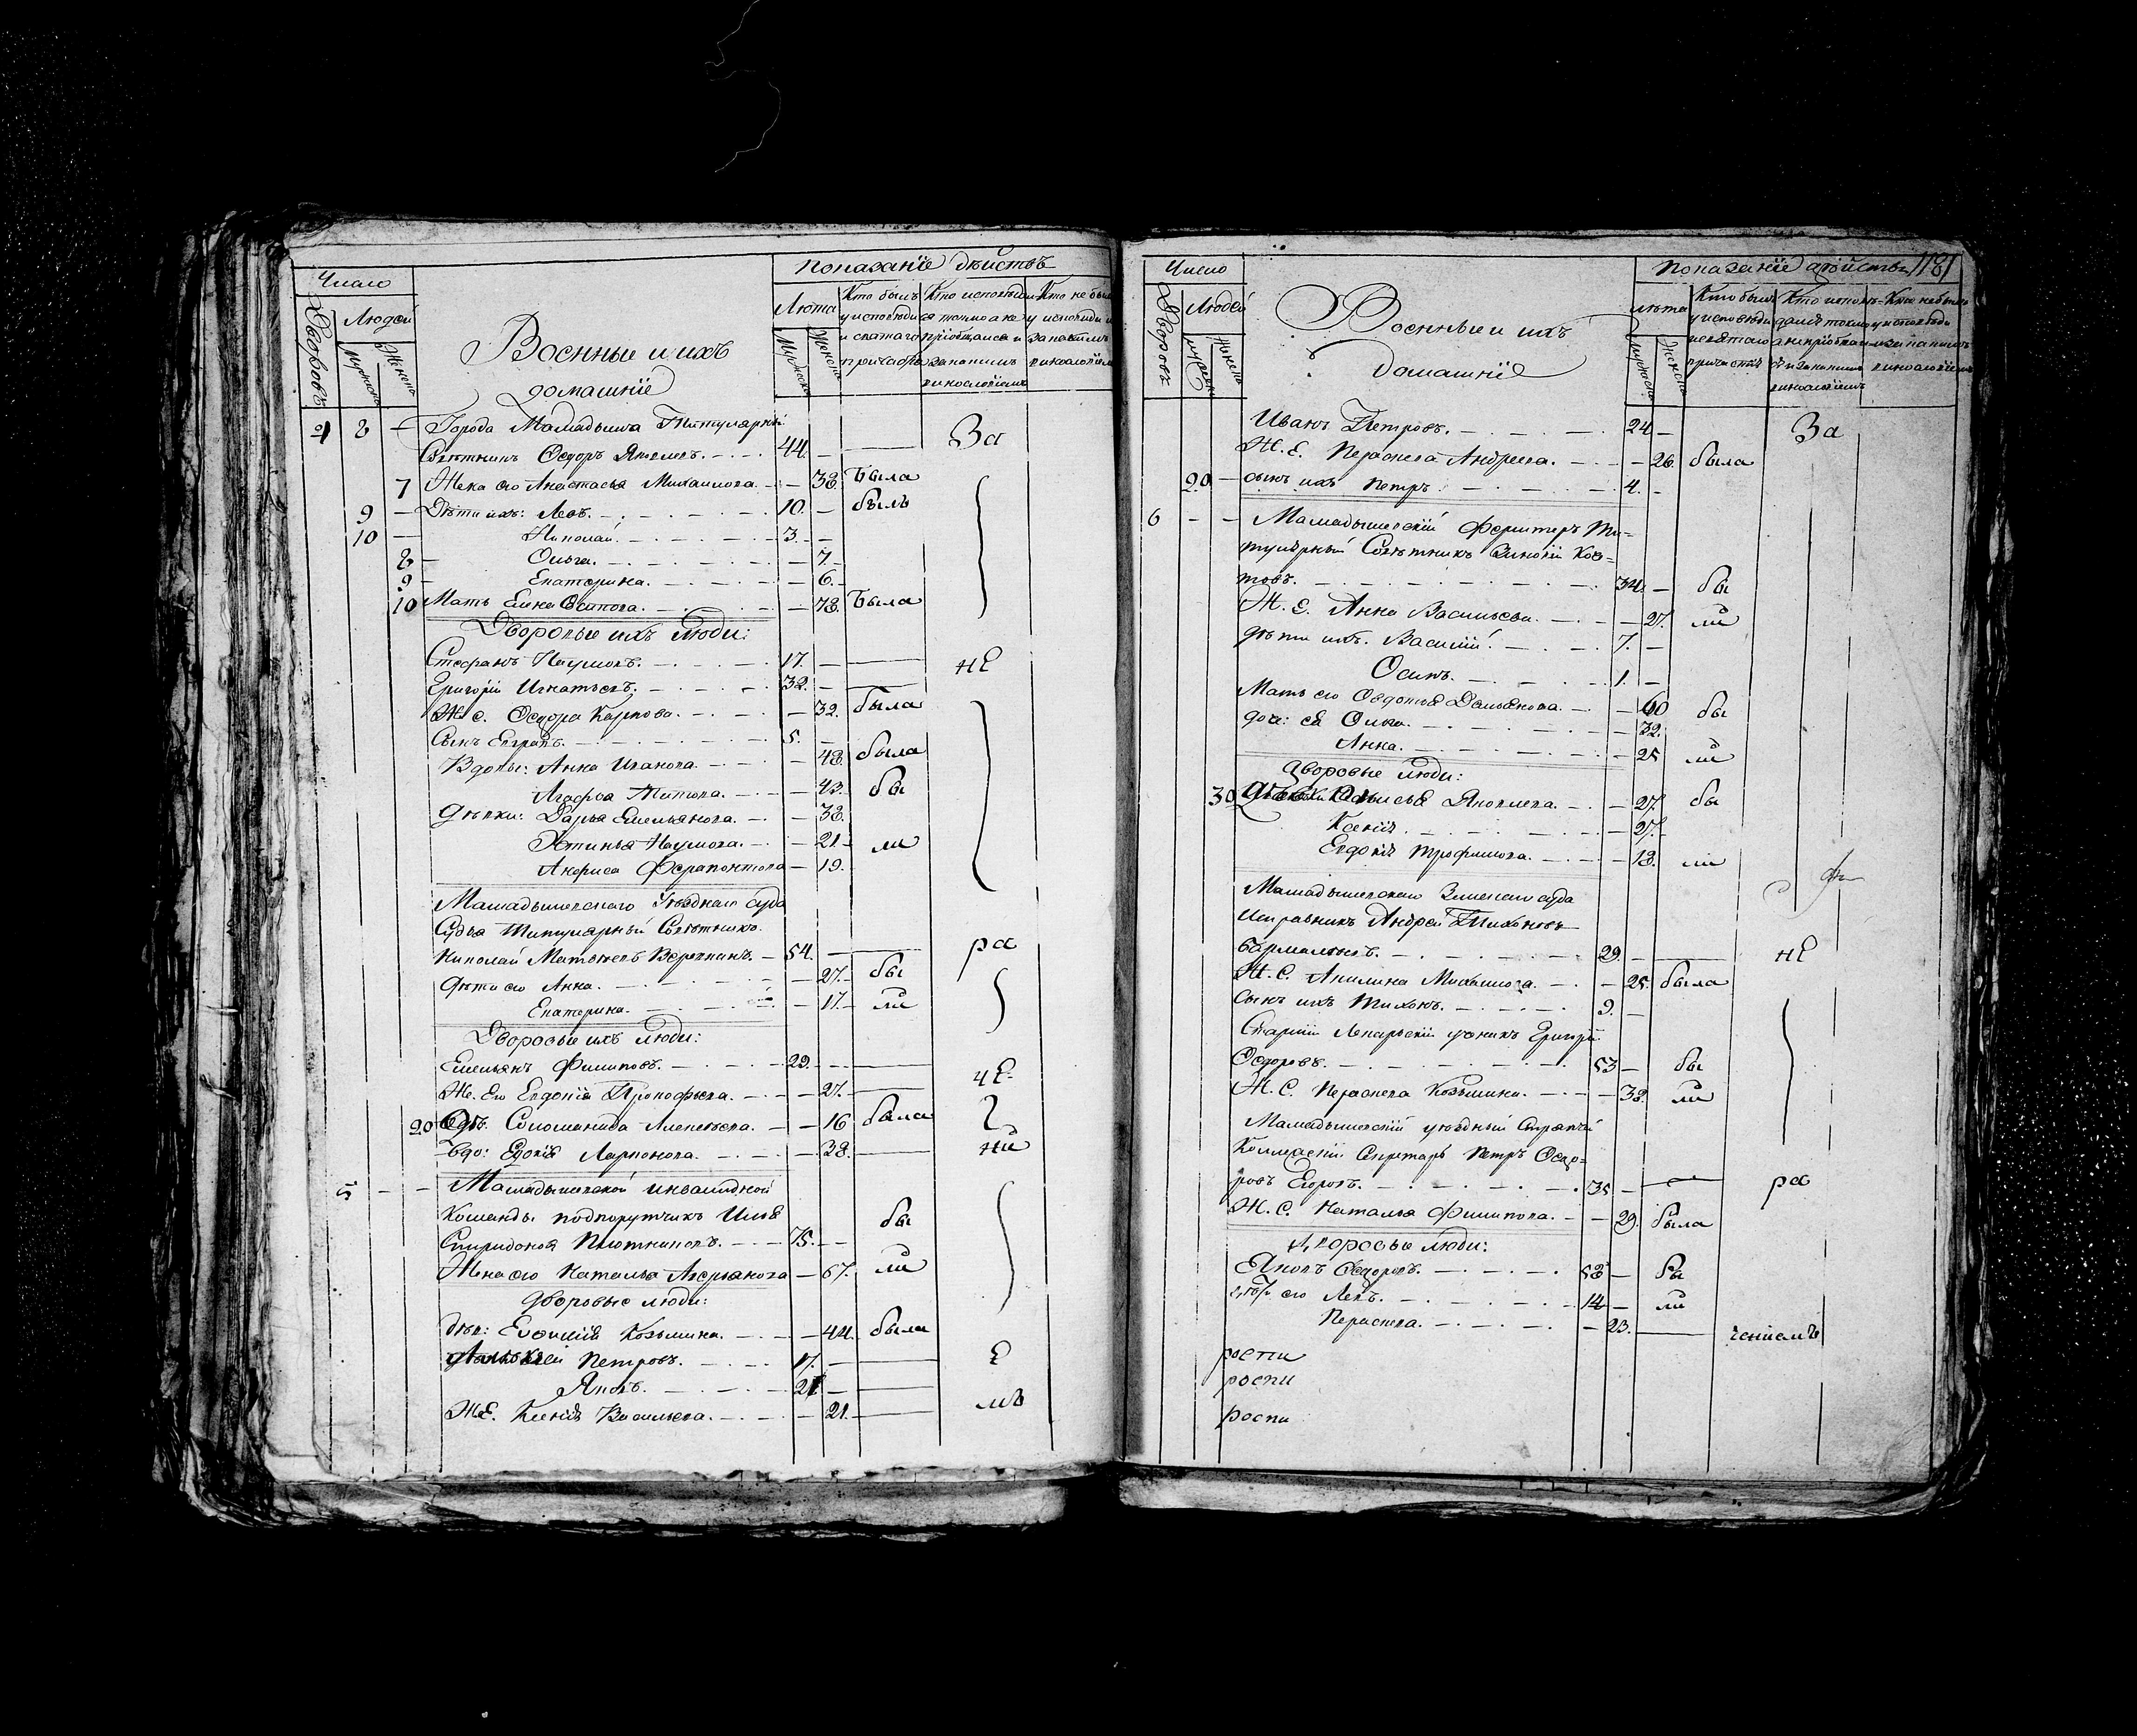 Число
Дворовъ
Людей
Мужеска
Женска
Военные и ихъ
домашнїе
Показанїе дѣйствъ
Лѣта
Мужеска
Женска
Кто былъ
у исповѣди
и святаго
причастія
Кто исповѣдал
ся токмо а не
прїобщался и
за какимъ
винословїемъ
Кто не былъ
у исповѣди и
за какимъ
винословїем
4 8 — Города Мамадыша Титулярный
Совѣтникъ Ѳедоръ Яковлевъ. 44. — За
7 Жена его Анастасья Михаилова — 38. Была
9 — Дѣти ихъ: Левъ. 10. — былъ
10 — Николай. 3. —
8 — Ольга. — 7. —
9 — Екатерина. — 6. —
10 Мать Елена Осипова. — 78. Была
Дворовые ихъ люди:
Стефанъ Наумовъ. 17. — не
Григорїй Игнатьевъ. 32. —
Ж. е. Ѳедора Карпова. — 32. была
Сынъ Евграфъ. 5. —
Вдовы: Анна Иванова. — 48. была
Агафья Титова. — 43. бы
Дѣвки: Дарья Емельянова. — 38.
Устинья Наумова. — 21. — ли
Анфиса Ферапонтова — 19.
Мамадышевскаго Уѣзднаго суда
Судья Титулярный Совѣтникъ
Николай Матвѣевъ — 54. — ра
Дѣти его Анна. — 27. — бы
Екатерина. — 17. — ли
Дворовые ихъ люди:
Емельянъ Филиповъ. 29. — че
Же. Его Евдокїя Прокофьева. — 27. —
20 Дѣв. Соломанида Алексѣева. — 16 была
Вдо: Евдокїя Ларионова. — 38. — ни
5 — — Мамадышевской инвалидной
Команды подпорутчикъ Илья
Спиридоновъ Плотниковъ. 75. — бы
Жена его Наталья Аверьянова — 67. ли
Дворовые люди:
Дѣв: Евфимїя Козьмина. — 44. была
Алексѣй Петровъ. 17. — е
Яковъ. 21 —
ЖЕ. Ксенїя Васильева. — 21. — мъ
1181
Число
Дворовъ
Людей
Мужеска
Женска
Военные и ихъ
домашнїе
Показанїе дѣйствъ
лѣта
Мужеска
Женска
Кто былъ
у исповѣди
и святаго
причастїя
Кто исповѣ-
далъ токмо
а не прїобщал
ся и за какимъ
винословїемъ
Кто не былъ
у исповѣди
и за какимъ
винословїемъ
Иванъ Петровъ. 24 — За
Ж. Е. Парасковья Андреева. — 26. была
20 — сынъ ихъ Петръ. 4. —
6 — — Мамадышевскїй Ти-
тулярный Совѣтникъ
товъ. 34. — бы
Ж. е. Анна Васильева. — 27. ли
Дѣти ихъ. Василїй. 7. —
Осипъ. 1. —
Мать его Овдотья Демьянова. — 60 бы
дочи: ея Ольга. — 32.
Анна. — 25 ли
Дворовые люди:
30 Яковлева. — 27. бы
Ксенїя. — 27. —
Евдокїя Трофимова. — 18. ли
Мамадышевскаго Земскаго суда
Исправникъ Андрей Тихоновъ
29. — не
Ж. е. Акилина Михаилова. — 25. была
Сынъ ихъ Тихонъ. 9. —
Старшїй Лекарскїй ученикъ Григорїй
Ѳедоровъ. 53 — бы
Ж. е. Парасковья Козьмина. — 38. ли
Мамадышевскїй уѣздный Стряпчїй
Коллежскїй Секретарь Петръ Ѳедо-
ровъ Егоровъ. 35 — ра
Ж. е. Наталья Филипова. — 29. была
Дворовые люди:
Яковъ Ѳедоровъ. 58 — бы
его Левъ. 14 — ли
Парасковья. — 23. — ченїемъ
роспи
роспи
роспи